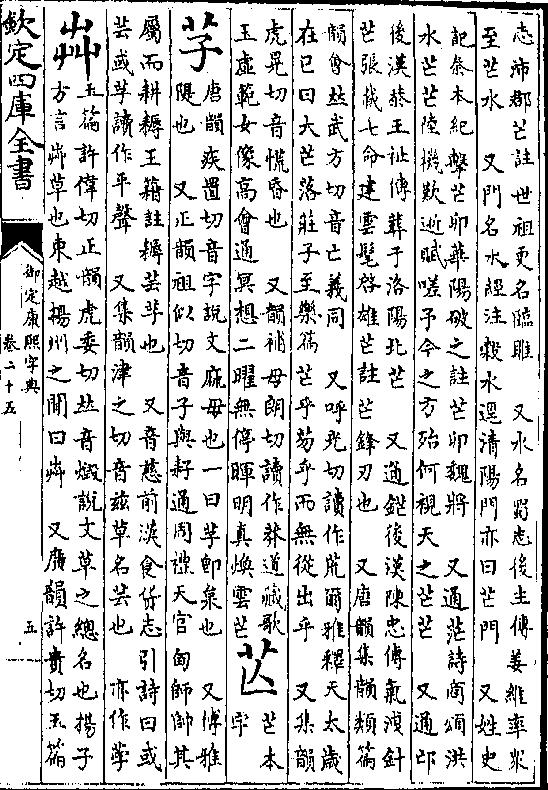 志沛郡芒註世祖更名臨睢 又水名蜀志後主傳姜維率眾
至芒水 又門名水經注穀水逕清陽門亦曰芒門 又姓史
記秦本紀擊芒卯華陽破之註芒卯魏將 又通茫詩商頌洪
水芒芒陸機歎逝賦嗟予今之方殆何視天之芒芒 又通邙
後漢恭王祉傳葬于洛陽北芒 又通鋩後漢陳忠傳氣洩針
芒張載七命建雲髦啓雄芒註芒鋒刃也 又唐韻集韻類篇
韻會𠀤武方切音亡義同 又呼光切讀作肓爾雅釋天太歲
在巳曰大芒落莊子至樂篇芒乎芴乎而無從出乎 又集韻
虎晃切音慌昏也 又韻補母朗切讀作莽道藏歌
玉虛範女像高會通冥想二曜無停暉明真煥雲芒
芒本
字
芓
唐韻疾置切音字說文麻母也一曰芓卽枲也 又博雅
隄也 又正韻祖似切音子與耔通周禮天官甸師帥其
屬而耕耨王籍註耨芸芓也 又音慈前漢食貨志引詩曰或
芸或芓讀作平聲 又集韻津之切音兹草名芸也 亦作孶
芔
玉篇許偉切正韻虎委切𠀤音燬說文草之總名也揚子
方言芔草也東越揚州之閒曰芔 又廣韻許貴切玉篇
欽定四庫全書
御定康熙字典
卷二十五
五